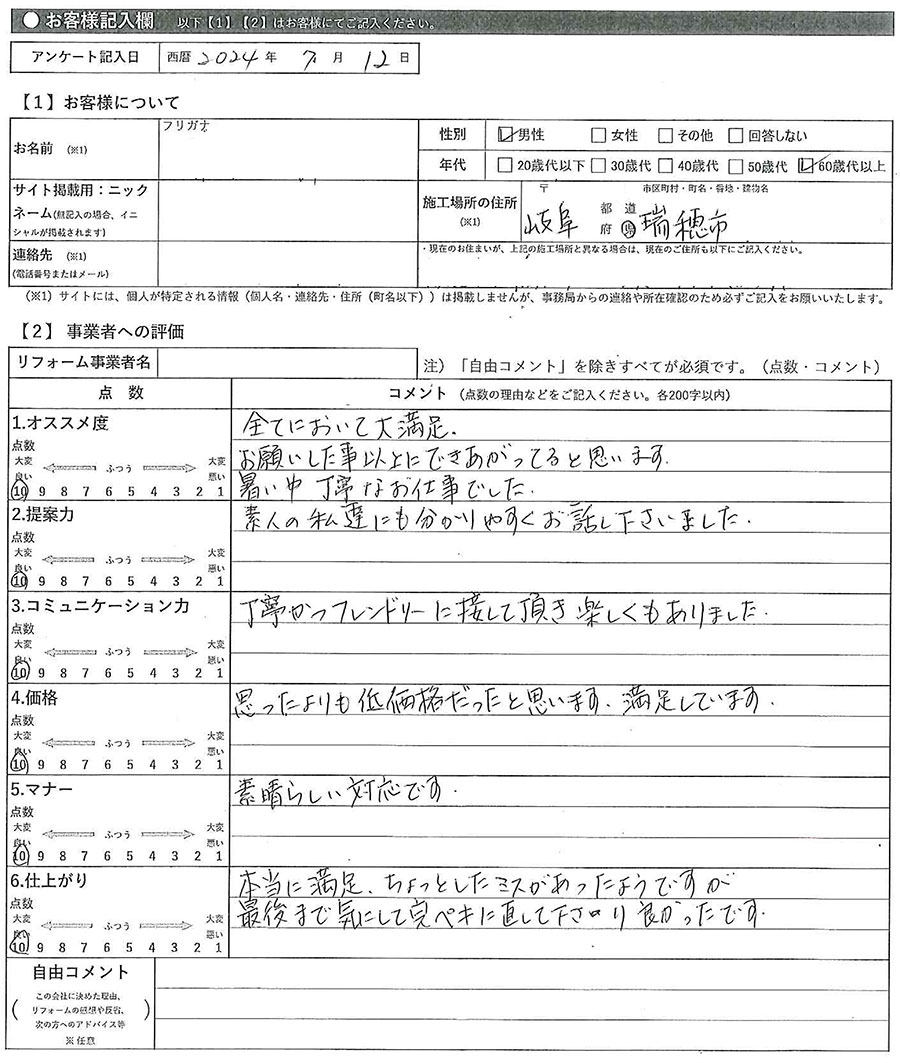 ● お客様記入欄 以下【1】【2】はお客様にてご記入ください。
アンケート記入日 西暦 2024 年 7 月 12 日
【1】お客様について
お名前 (※1) フリガナ
性別 ☑男性 □女性 □その他 □回答しない
年代 □20歳代以下 □30歳代 □40歳代 □50歳代 ☑60歳代以上
サイト掲載用：ニックネーム(無記入の場合、イニシャルが掲載されます)
施工場所の住所 (※1) 〒 市区町村・町名・番地・建物名
岐阜 都 道 府 県 瑞穂市
連絡先 (※1)
(電話番号またはメール)
・現在のお住まいが、上記の施工場所と異なる場合は、現在のご住所も以下にご記入ください。
（※1）サイトには、個人が特定される情報（個人名・連絡先・住所（町名以下））は掲載しませんが、事務局からの連絡や所在確認のため必ずご記入をお願いいたします。
【2】事業者への評価
リフォーム事業者名
注）「自由コメント」を除きすべてが必須です。（点数・コメント）
点 数 コメント （点数の理由などをご記入ください。各200字以内）
1.オススメ度
点数
大変良い ふつう 大変悪い
10 9 8 7 6 5 4 3 2 1
全てにおいて大満足.
お願いした事以上にできあがってると思います.
暑い中 丁寧なお仕事でした.
2.提案力
点数
大変良い ふつう 大変悪い
10 9 8 7 6 5 4 3 2 1
素人の私達にも分かりやすくお話し下さいました.
3.コミュニケーション力
点数
大変良い ふつう 大変悪い
10 9 8 7 6 5 4 3 2 1
丁寧かつフレンドリーに接して頂き楽しくもありました.
4.価格
点数
大変良い ふつう 大変悪い
10 9 8 7 6 5 4 3 2 1
思ったよりも低価格だったと思います、満足しています.
5.マナー
点数
大変良い ふつう 大変悪い
10 9 8 7 6 5 4 3 2 1
素晴らしい対応です.
6.仕上がり
点数
大変良い ふつう 大変悪い
10 9 8 7 6 5 4 3 2 1
本当に満足、ちょっとしたミスがあったようですが
最後まで気にして完ペキに直して下さり良かったです.
自由コメント
（この会社に決めた理由、
リフォームの感想や反省、
次の方へのアドバイス等）
※任意